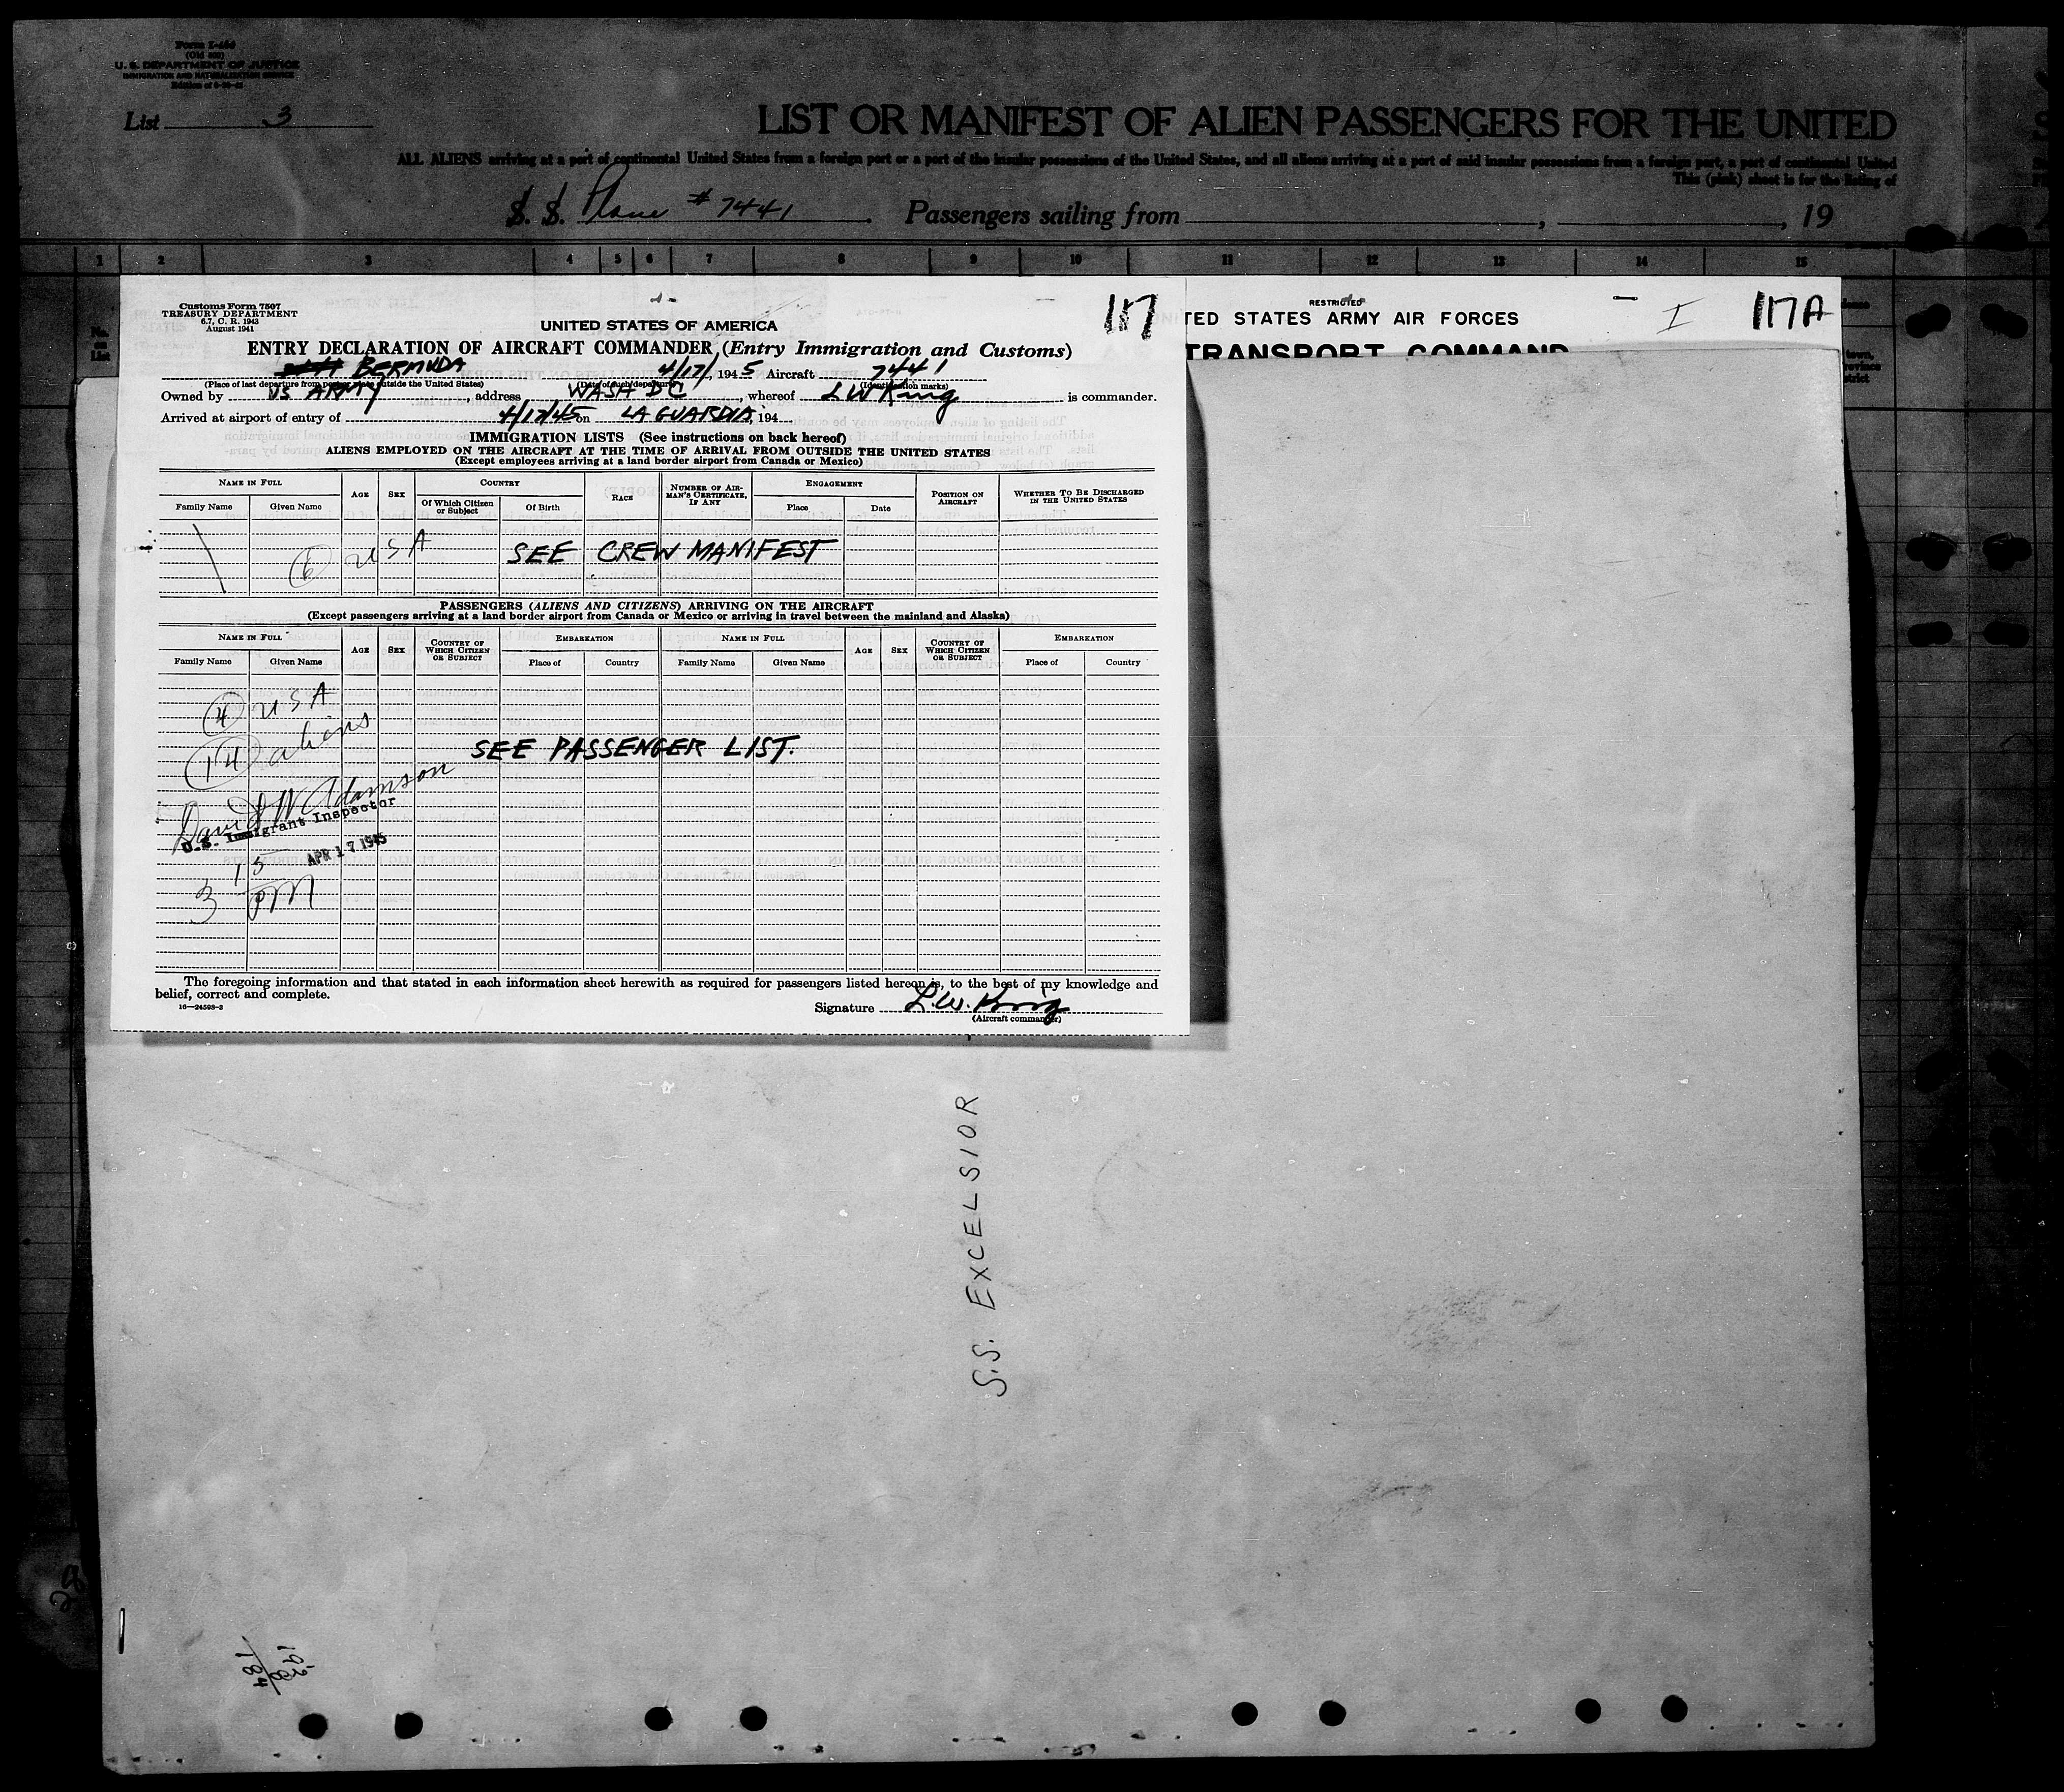 Form I-460
(Old 500)
U. S. DEPARTMENT OF JUSTICE
IMMIGRATION AND NATURALIZATION SERVICE
List 3
LIST OR MANIFEST OF ALIEN PASSENGERS FOR THE UNITED
ALL ALIENS arriving at a port of continental United States from a foreign port or a port of the insular possessions of the United States, and all aliens arriving at a port of said insular possessions from a foreign port, a port of continental United
This (pink) sheet is for the listing of
S. S. Plane # 7441 Passengers sailing from , , 19
1 2 3 4 5 6 7 8 9 10 11 12 13 14 15
No. on List
Customs Form 7507
TREASURY DEPARTMENT
6.7, C. R. 1943
August 1941
117
UNITED STATES OF AMERICA
ENTRY DECLARATION OF AIRCRAFT COMMANDER (Entry Immigration and Customs)
BERMUDA 4/17/, 1945 Aircraft 7441
(Place of last departure from port or place outside the United States) (Date of such departure) (Identification marks)
Owned by US ARMY, address WASH DC, whereof L W King is commander.
Arrived at airport of entry of 4/17/45 on LA GUARDIA, 194
IMMIGRATION LISTS (See instructions on back hereof)
ALIENS EMPLOYED ON THE AIRCRAFT AT THE TIME OF ARRIVAL FROM OUTSIDE THE UNITED STATES
(Except employees arriving at a land border airport from Canada or Mexico)
NAME IN FULL AGE SEX COUNTRY RACE NUMBER OF AIRMAN'S CERTIFICATE, IF ANY ENGAGEMENT POSITION ON AIRCRAFT WHETHER TO BE DISCHARGED IN THE UNITED STATES
Family Name Given Name Of Which Citizen or Subject Of Birth Place Date
6 USA SEE CREW MANIFEST
PASSENGERS (ALIENS AND CITIZENS) ARRIVING ON THE AIRCRAFT
(Except passengers arriving at a land border airport from Canada or Mexico or arriving in travel between the mainland and Alaska)
NAME IN FULL AGE SEX COUNTRY OF WHICH CITIZEN OR SUBJECT EMBARKATION NAME IN FULL AGE SEX COUNTRY OF WHICH CITIZEN OR SUBJECT EMBARKATION
Family Name Given Name Place of Country Family Name Given Name Place of Country
4 USA
14 aliens
SEE PASSENGER LIST.
David W Adamson
U.S. Immigrant Inspector
APR 17 1945
3 15 PM
The foregoing information and that stated in each information sheet herewith as required for passengers listed hereon is, to the best of my knowledge and
belief, correct and complete.
16—24598-2
Signature L.W. King
(Aircraft commander)
RESTRICTED
TED STATES ARMY AIR FORCES
I
117A
TRANSPORT COMMAND
S.S. EXCELSIOR